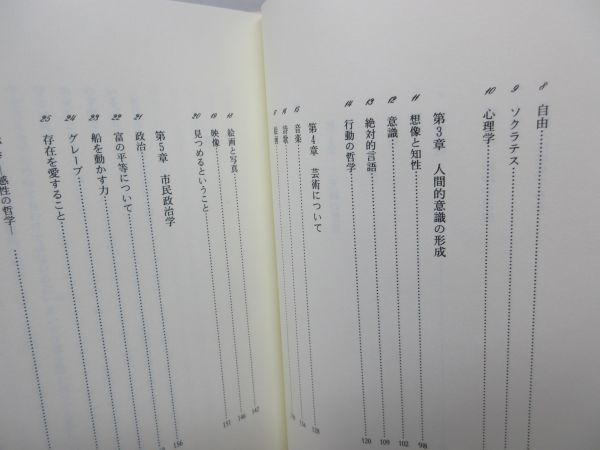 8 自由
9 ソクラテス
10 心理学
第3章 人間的意識の形成
11 想像と知性 98
12 意識 102
13 絶対的言語 109
14 行動の哲学 120
第4章 芸術について
15 音楽 128
16 詩歌
絵画
18 絵画と写真 142
19 映像 146
20 見つめるということ 151
第5章 市民政治学
21 政治 156
22 富の平等について
23 船を動かす力
24 グレーブ
25 存在を愛すること
感性の哲学―